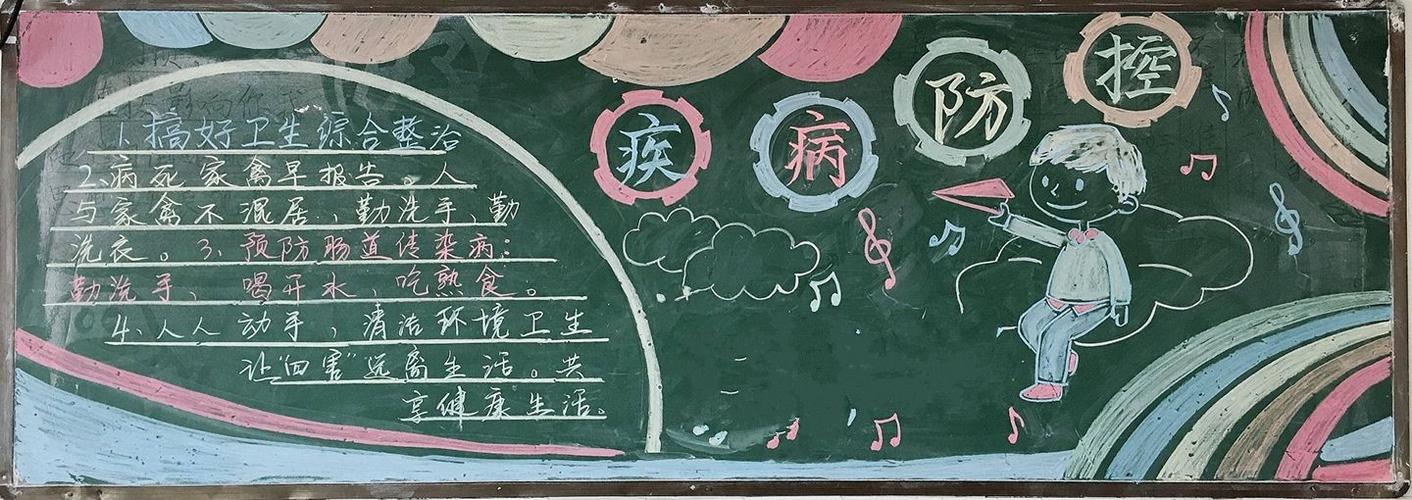 疾病防控
1.搞好卫生综合整治
2、病死家禽早报告。人
与家禽不混居,勤洗手、勤
洗衣。3、预防肠道传染病:
勤洗手、喝开水,吃熟食。
4、人人动手,清洁环境卫生
让"四害"远离生活。共
享健康生活。